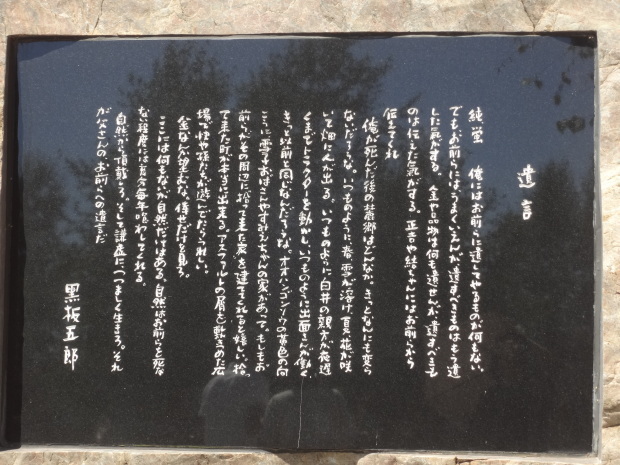 遺言
純 蛍 俺にはお前らに遺してやるものが何もない。
でも、お前らには、うまくいえんが、遺すべきものはもう遺
した気がする。金や品物は何も遺せんが、遺すべきも
のは伝えた気がする。正吉や結ちゃんにはお前らから
伝えてくれ
俺が死んだ後の麓郷はどんなか。きっとなんにも変ら
ないんだろうな。いつものように春、雪が溶け、夏、花が咲
いて畑に人が出る。いつものように白井の親方が夜遅
くまでトラクターを動かし、いつものように出面さんが働く。
きっと以前と同じなんだろうな。オオハンゴンソウの黄色の向
こうに雪子おばさんやすみえちゃんの家があって。もしもお
前らがその周辺に拾って来た家を建ててくれると嬉しい。拾っ
て来た町が本当に出来る。アスファルトの屑を敷きつめた広
場で快や孫たちが遊んでたらうれしい。
金なんか望むな。倖せだけを見ろ。
ここには何もないが自然だけはある。自然はお前らを死な
ない程度には充分毎年喰わしてくれる。
自然から頂戴しろ。そして謙虚に、つつましく生きろ。それ
が父さんの、お前らへの遺言だ
黒板五郎